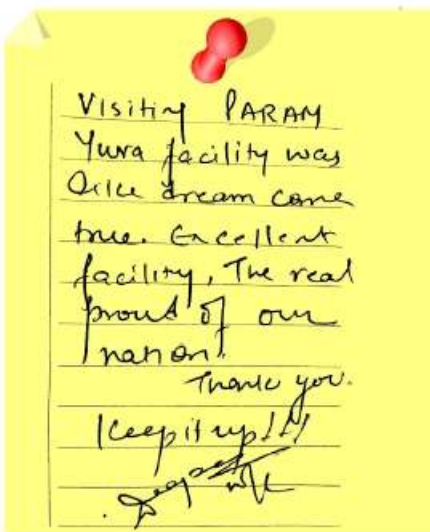 Visiting PARAM
Yuva facility was
like dream come
true. Excellent
facility, The real
proud of our
nation.
Thank you.
Keep it up!!!